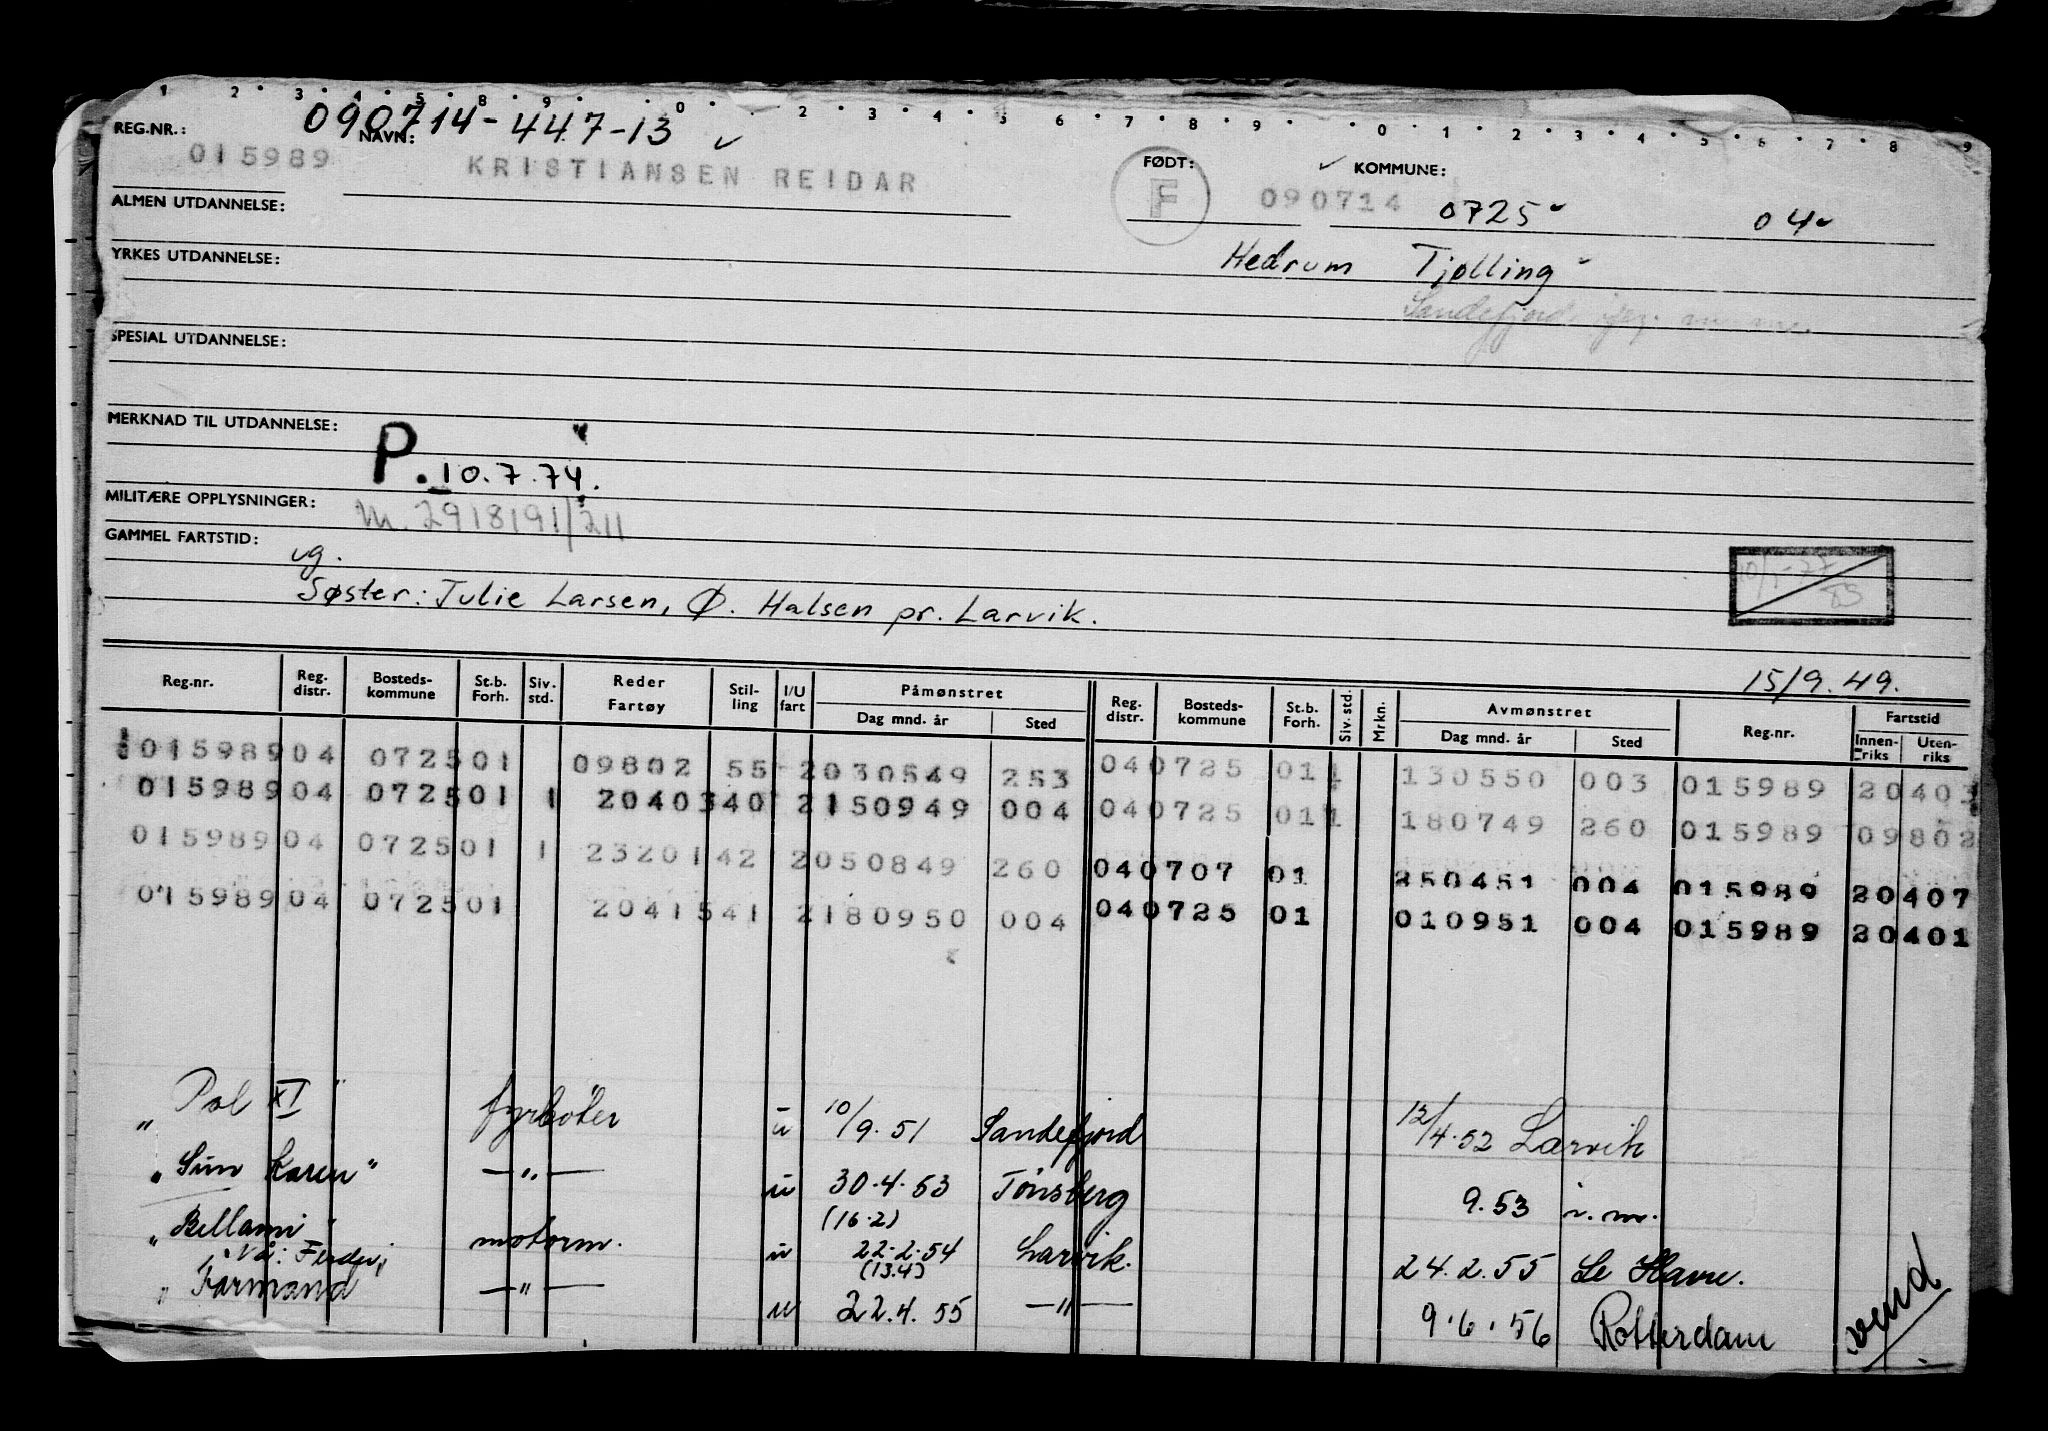 1 2 3 4 5 8 9 0 2 3 4 5 6 7 8 9 0 1 2 3 4 5 6 7 8 9
090714-447-13 ✓
REG.NR.: NAVN: FØDT: ✓ KOMMUNE:
015989 KRISTIANSEN REIDAR F 090714 0725 04
ALMEN UTDANNELSE:
YRKES UTDANNELSE: Hedrum Tjølling
Sandefjord
SPESIAL UTDANNELSE:
MERKNAD TIL UTDANNELSE:
P. 10.7.74.
MILITÆRE OPPLYSNINGER: M. 2918191/211
GAMMEL FARTSTID: vg.
Søster: Julie Larsen, Ø. Halsen pr. Larvik.
15/9.49.
Reg.nr. Reg. distr. Bosteds-kommune St.b. Forh. Siv. std. Reder Fartøy Stil-ling I/U fart Påmønstret Dag mnd. år Sted Reg. distr. Bosteds-kommune St.b. Forh. Siv. std. Mrkn. Avmønstret Dag mnd. år Sted Reg.nr. Fartstid Innen-riks Uten-riks
015989 04 0725 01 09802 55 2 030549 253 04 0725 01 1 130550 003 015989 20403
015989 04 0725 01 1 20403 40 2 150949 004 04 0725 01 1 180749 260 015989 09802
015989 04 0725 01 1 23201 42 2 050849 260 04 0707 01 250451 004 015989 20407
015989 04 0725 01 20415 41 2 180950 004 04 0725 01 010951 004 015989 20401
"Pol XI" fyrbøter u 10/9.51 Sandefjord 12/4.52 Larvik
"Sun Karen" —"— u 30.4.53 Tønsberg 9.53 i.m.
(16.2)
"Bellami" motorm. u 22.2.54 Larvik. 24.2.55 Le Havre.
(13.4)
"Farmand —"— u 22.4.55 —"— 9.6.56 Rotterdam
vend